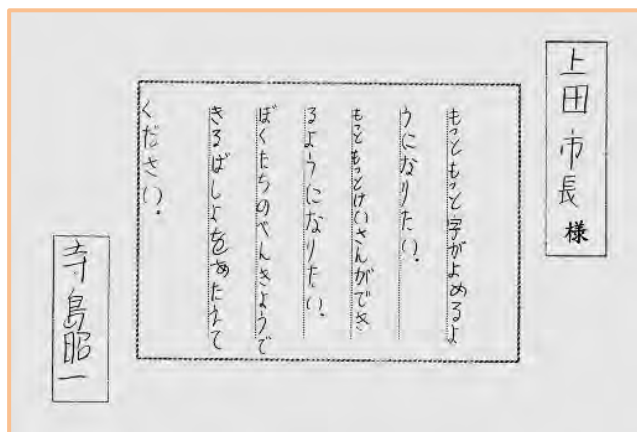 上田市長様
もっともっと字がよめるよ
うになりたい.
もっともっとけいさんができ
るようになりたい.
ぼくたちのべんきょうで
きるばしょをあたえて
ください.
寺島昭一